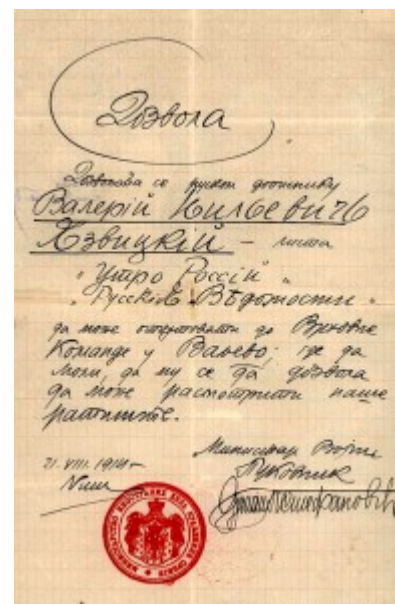 Дозвола
Дозвољава се руском дописнику
Валерій Юильевичъ
Язвицкій – листа
„Утро Россіи"
„Русскія Вѣдомости"
да може отпутовати до Врховне
Команде у Ваљево; где да
моли, да му се да дозвола
да може расмотрити наше
ратиште.
Министар Војни
21. VIII. 1914
Пуковник
Ниш